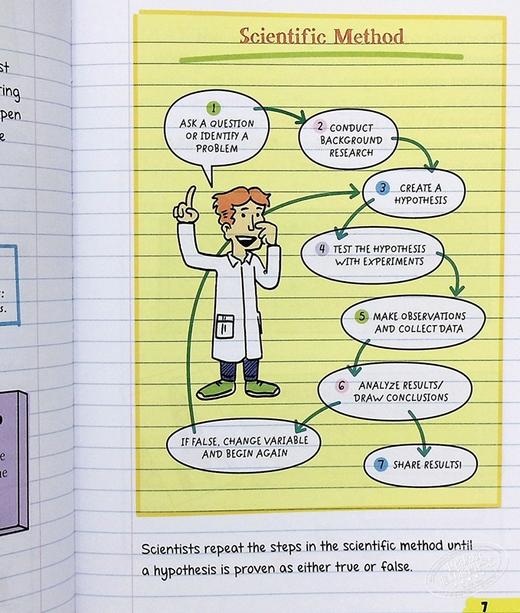 st
ring
pen
e
:
s.
e
ne
Scientific Method
1
ASK A QUESTION
OR IDENTIFY A
PROBLEM
2 CONDUCT
BACKGROUND
RESEARCH
3 CREATE A
HYPOTHESIS
4 TEST THE HYPOTHESIS
WITH EXPERIMENTS
5 MAKE OBSERVATIONS
AND COLLECT DATA
6 ANALYZE RESULTS/
DRAW CONCLUSIONS
IF FALSE, CHANGE VARIABLE
AND BEGIN AGAIN
7 SHARE RESULTS!
Scientists repeat the steps in the scientific method until
a hypothesis is proven as either true or false.
7